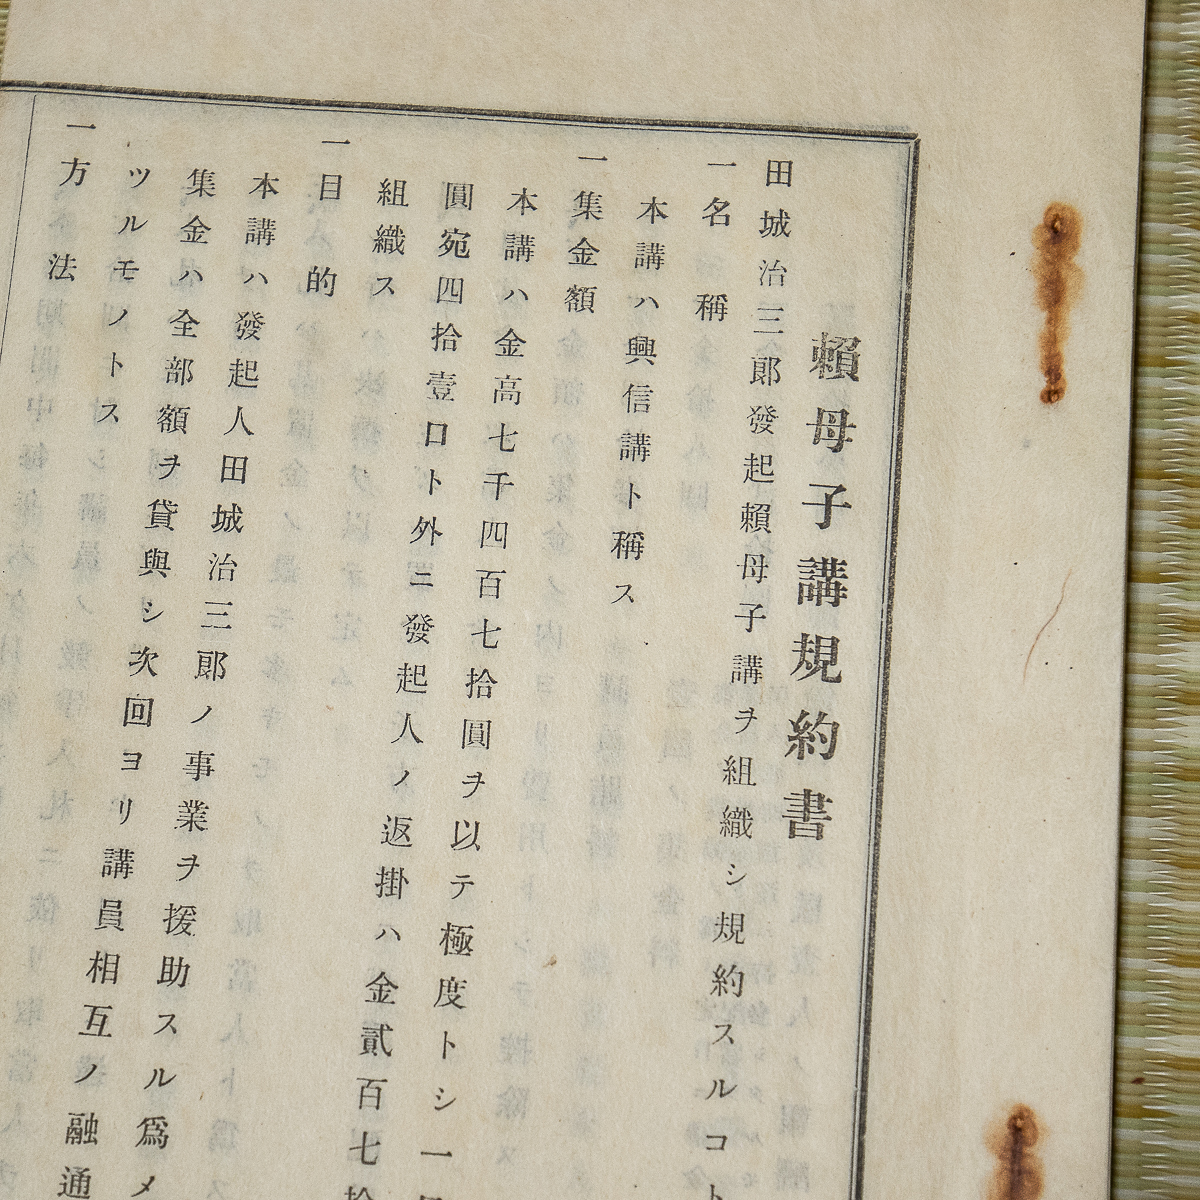 賴母子講規約書
田城治三郎發起賴母子講ヲ組織シ規約スルコト
一名稱
本講ハ興信講ト稱ス
一集金額
本講ハ金高七千四百七拾圓ヲ以テ極度トシ一
圓宛四拾壹口ト外ニ發起人ノ返掛ハ金貳百七拾
組織ス
一目的
本講ハ發起人田城治三郎ノ事業ヲ援助スル爲メ
集金ハ全部額ヲ貸與シ次回ヨリ講員相互ノ融通
ツルモノトス
一方法